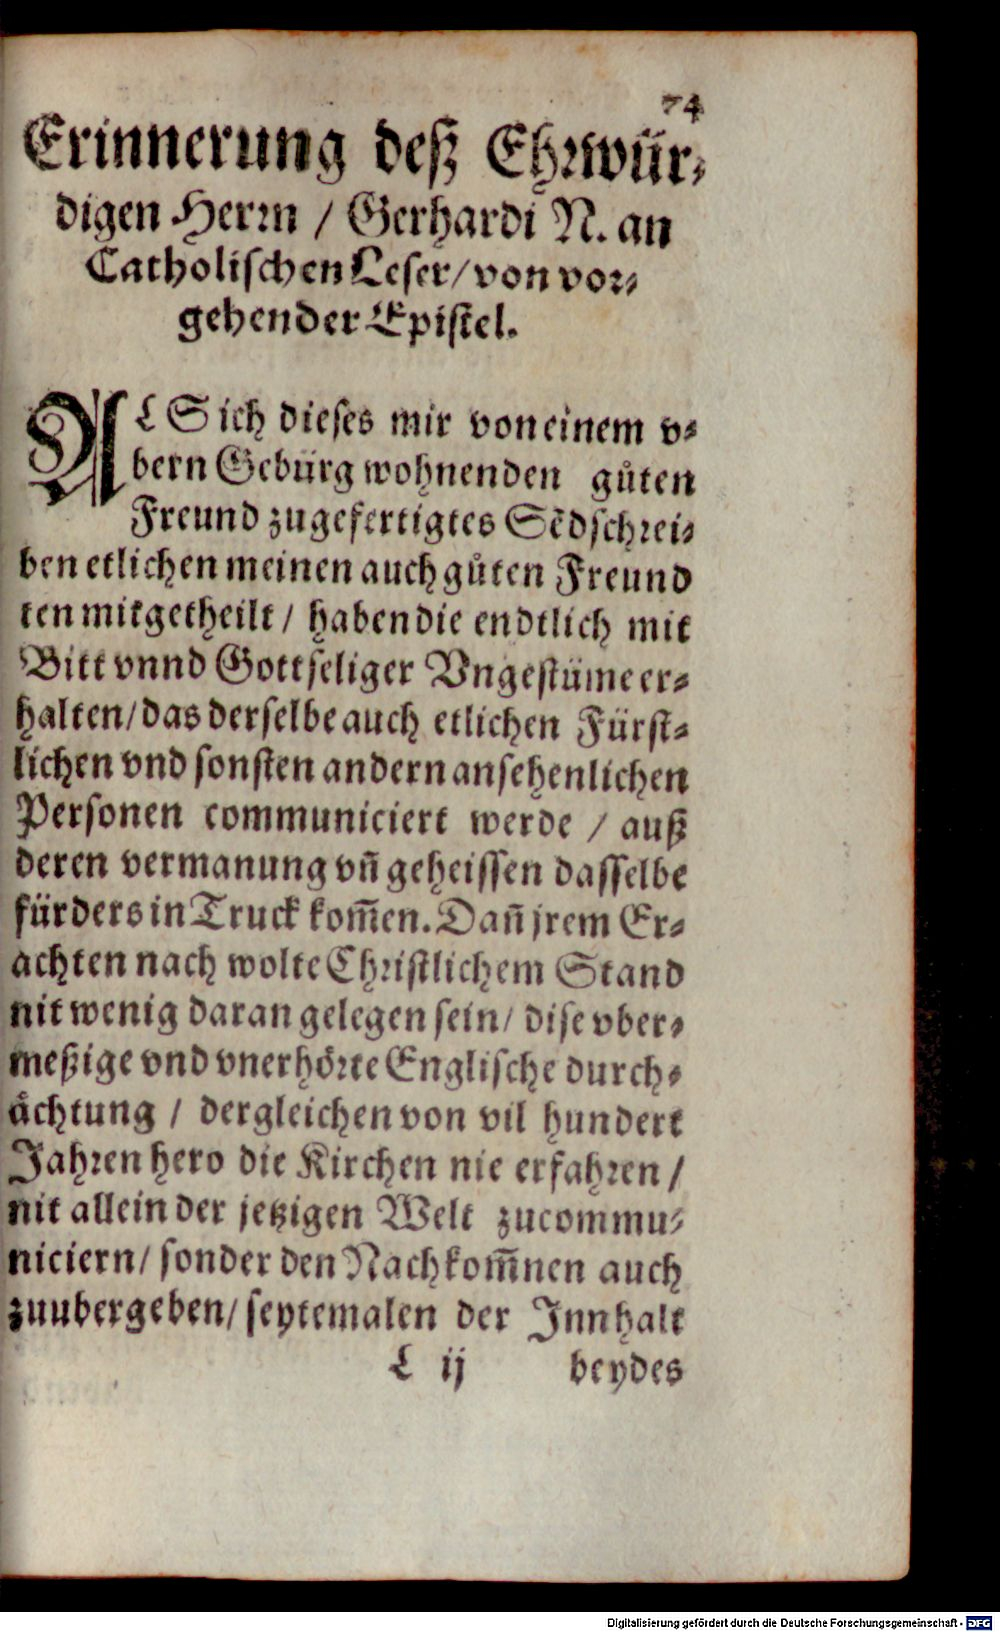 74
Erinnerung deß Ehrwür-
digen Herrn / Gerhardi N. an
Catholischen Leser / von vor-
gehender Epistel.
ALS ich dieses mir von einem v-
bern Gebürg wohnenden gůten
Freund zugefertigtes Sẽdschrei-
ben etlichen meinen auch gůten Freund
ten mitgetheilt / haben die endtlich mit
Bitt vnnd Gottseliger Vngestüme er-
halten / das derselbe auch etlichen Fürst-
lichen vnd sonsten andern ansehenlichen
Personen communiciert werde / auß
deren vermanung vñ geheissen dasselbe
fürders in Truck kom̃en. Dañ jrem Er-
achten nach wolte Christlichem Stand
nit wenig daran gelegen sein / dise vber-
meßige vnd vnerhörte Englische durch-
ächtung / dergleichen von vil hundert
Jahren hero die Kirchen nie erfahren /
nit allein der jetzigen Welt zucommu-
niciern / sonder den Nachkom̃nen auch
zuubergeben / seytemalen der Innhalt
L ij beydes
Digitalisierung gefördert durch die Deutsche Forschungsgemeinschaft - DFG